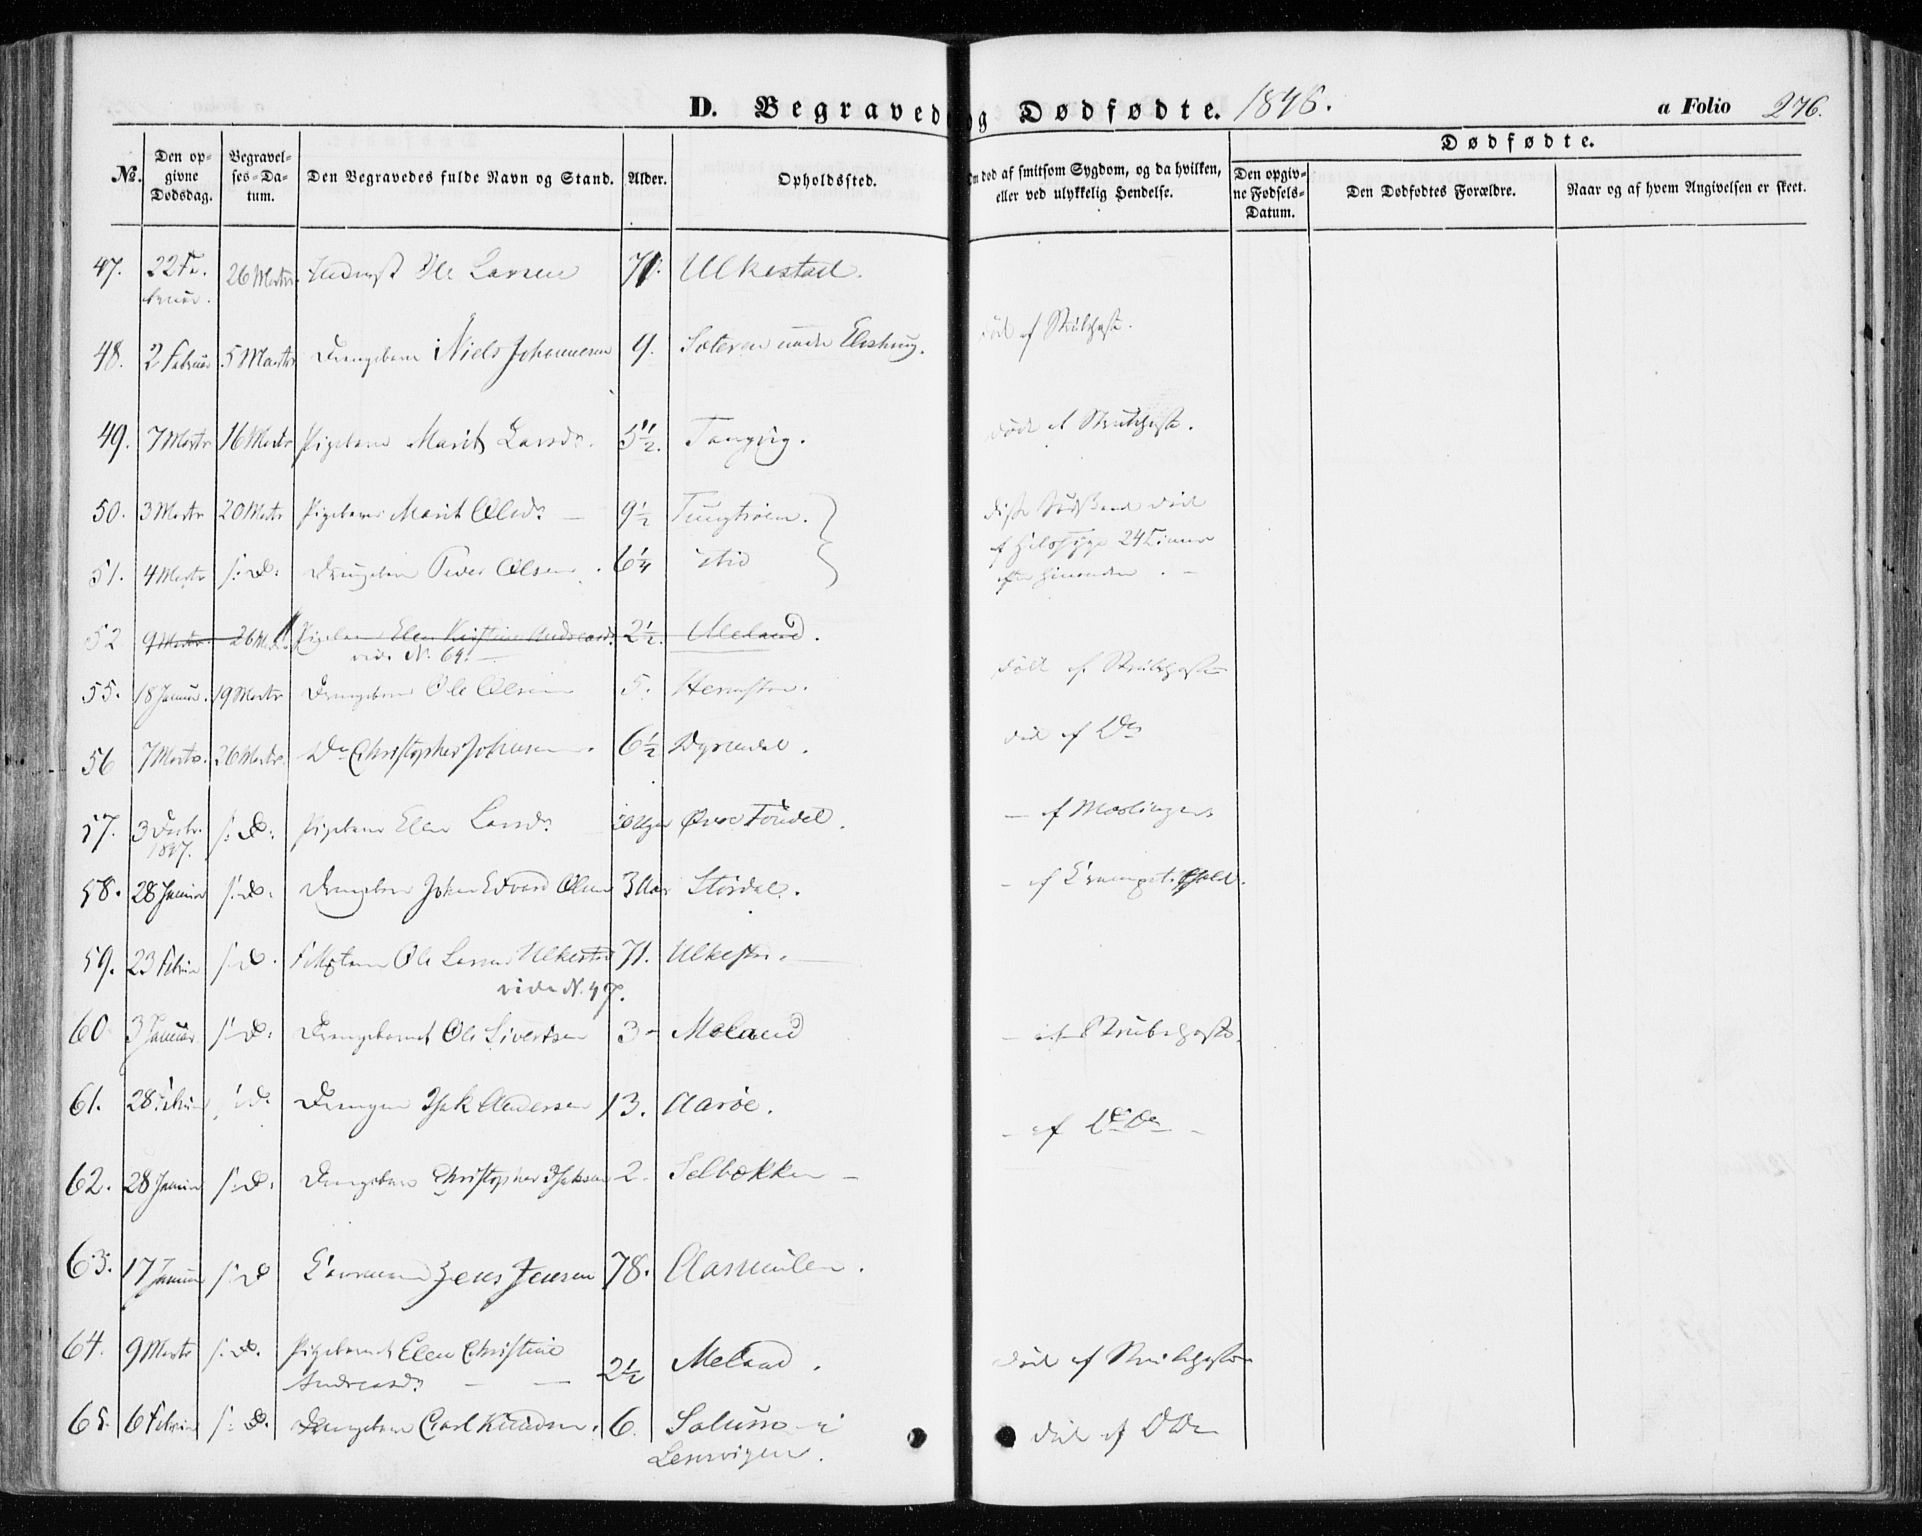 D. Begravede og Dødfødte. 1848. a Folio 276.
Dødfødte.
No. Den opgivne Dødsdag. Begravelses-Datum. Den Begravedes fulde Navn og Stand. Alder. Opholdssted. død af smitsom Sygdom, og da hvilken, eller ved ulykkelig Hendelse. Den opgivne Fødsels-Datum. Den Dødfødtes Forældre. Naar og af hvem Angivelsen er skeet.
47. 22 Februar. 26 Marts. Ole Larsen 71. Ulkestad.
48. 2 Februar 5 Marts Drengebarn Niels Johannesen 9. Sæteren under død af Strubehoste.
49. 7 Marts 16 Marts Pigebarn Marit Larsdr. 5 1/2. død af Strubehoste.
50. 3 Marts 20 Marts Pigebarn Marit Olsdr — 9 1/2 disse Sødskende døde
af 24 Timer
efter hinanden. —
51. 4 Marts s: D: Drengebarn Peder Olsen. 6 1/4 ibid
52 9 Marts 26 Marts Pigebarn Elen Kirstine Andreasdr. 2 1/2. Meland.
vide N. 64. —
55. 18 Januar. 19 Marts Drengebarn Ole Olsen 5. død af Strubehoste
56 7 Marts. 26 Marts. Do Christopher Johnsen. 6 1/2 Dyrendal. død af Do
57. 3 Decbr. 1847. s: D: Pigebarn Elen Larsdr Uger Øvre af Meslinger.
58. 28 Januar s: D: Drengebarn Johan Edvard Olsen 3 Aar Størdal. — af
59. 23 Februar s: D. Ole Larsen Ulkestad 71. Ulkestad. —
vide N. 47.
60. 3 Januar s: D: Drengebarnet Ole Sivertsen 3 — Meland — af Strubehoste.
61. 28 Februar s: D. Drengen Isak Andersen 13. Aarøe. — af Do Do —
62. 28 Januar s: D: Drengebarn Christopher Isaksen 2. Selbækken —
63. 17 Januar s: D Jens Jensen 78. Aasmulen.
64. 9 Marts s: D. Pigebarnet Elen Christine
Andreasdr — — 2 1/2 Meland. død af Strubehoste
65. 6 Februar s: D. Drengebarn Carl Knudsen. 6. i
Lensvigen. død af Do